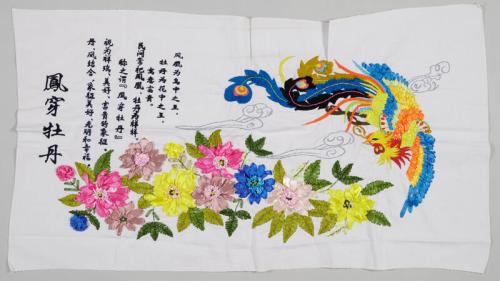 鳳凰為鳥中之王，
牡丹為花中之王，
寓意富貴。
民间常把鳳凰、牡丹为祥祥，
称之谓『鳳穿牡丹』
视为祥瑞、美好、富貴的象征。
丹、凤结合、象征美好、光明和幸福。
鳳穿牡丹